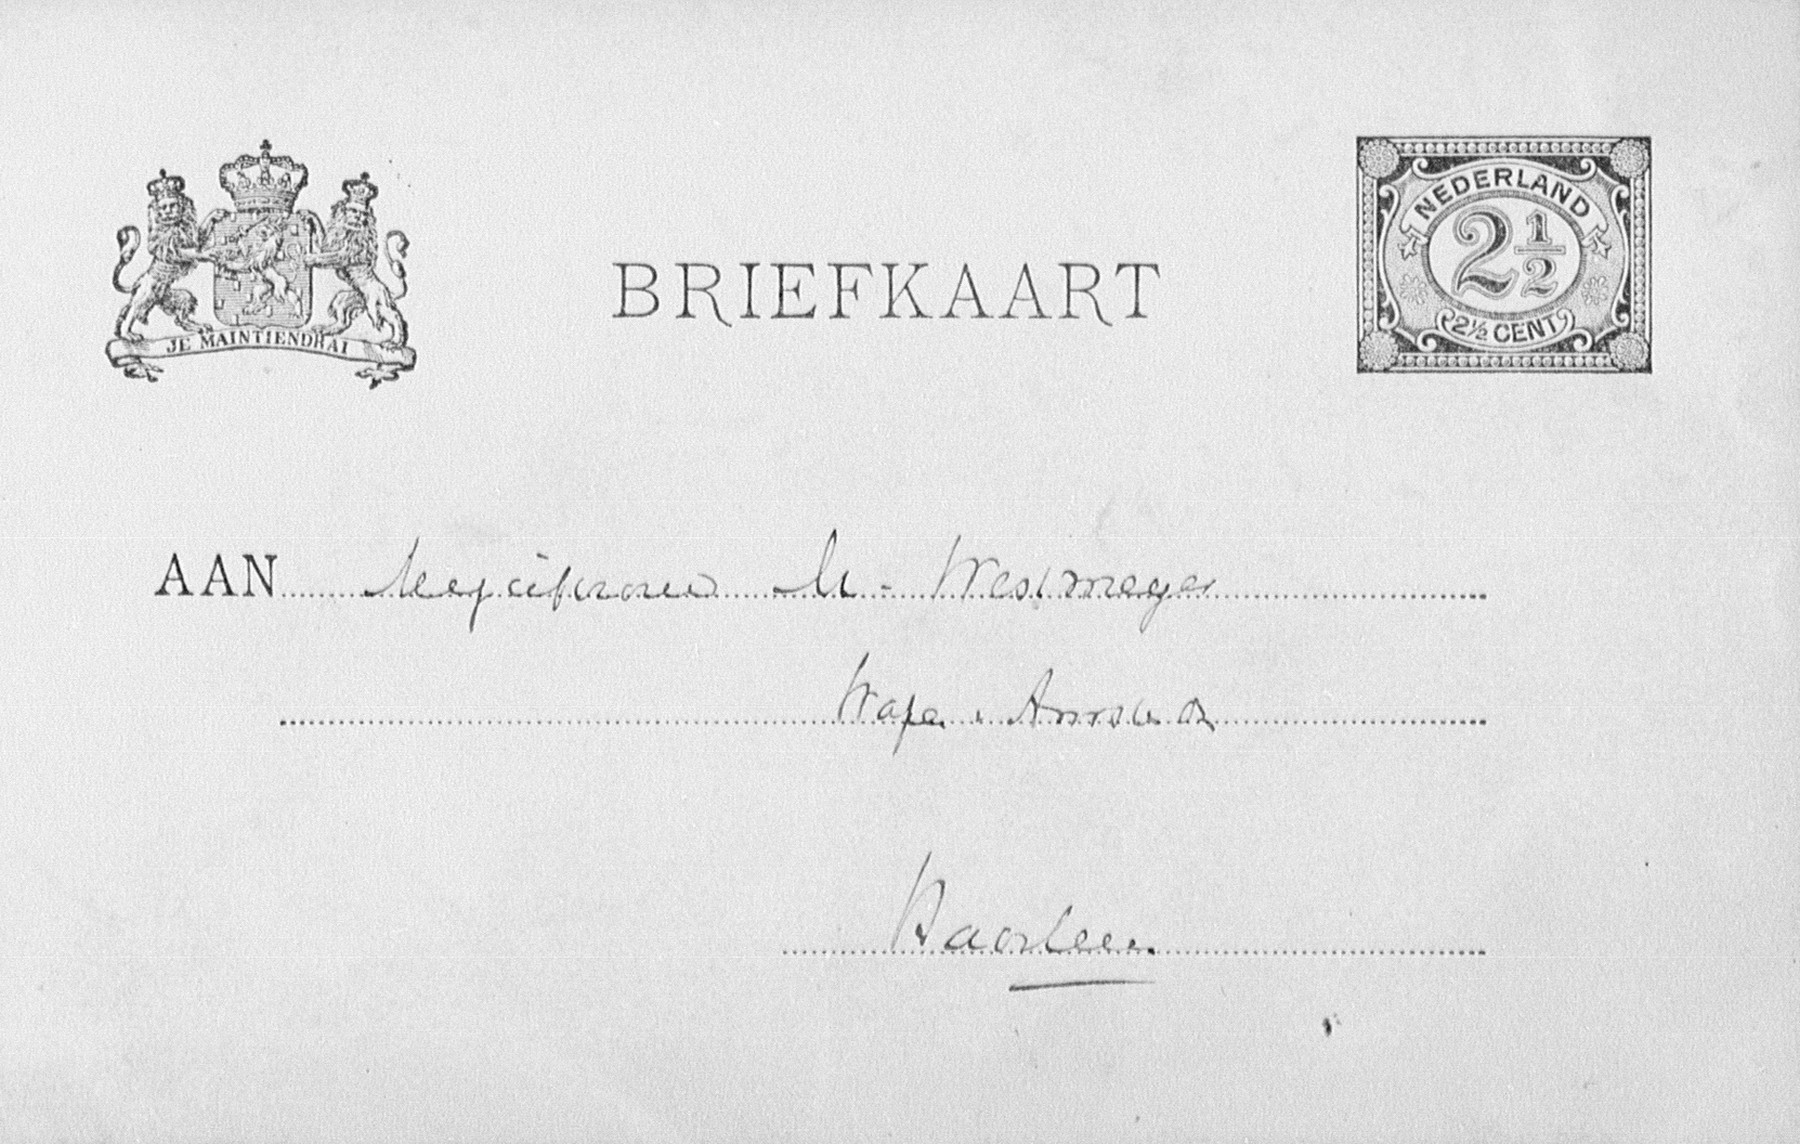 JE MAINTIENDRAI
BRIEFKAART
NEDERLAND
2 1/2
2½ CENT
AAN Mejufvrouw M. Westmeyer
Haarlem